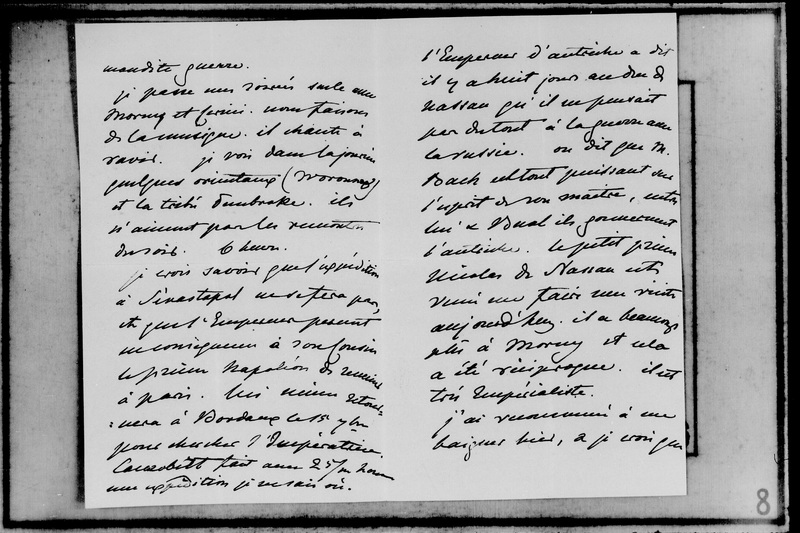 maudite guerre.
je passe mes soirées seule avec
Morny et        . nous faisons
de la musique. il chante à
ravir. je vois dans la journée
quelques orientaux (Woronzow)
et la tribu Pembroke. ils
n'aiment pas les
du soir. 6 heures.
je crois savoir que l'expédition
à Sévastopol ne se fera pas,
et que l'Empereur
en conséquence à son Cousin
le prince Napoléon de revenir
à paris. lui même retour=
=nera à Bordeaux le 15 7bre
pour chercher l'Impératrice.
Canrobert fait avec 25/m hommes
une expédition je ne sais où.
l'Empereur d'autriche a dit
il y a huit jours au duc de
Nassau qu'il ne pensait
pas du tout à la guerre avec
la russie. on dit que M.
Bach est tout puissant sur
l'esprit de son maître, entre
lui & Bual ils gouvernent
l'autriche. le petit prince
Nicolas de Nassau est
venu me faire une visite
aujourd'huy. il a beaucoup
plu à Morny et cela
a été réciproque. il est
très Impérialiste.
j'ai recommencé à me
baigner hier, & je crois que
8